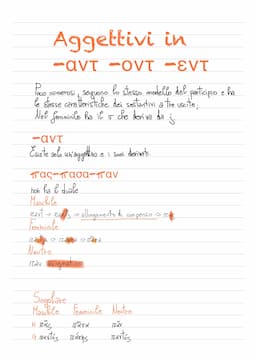 Aggettivi in
-αντ -οντ -εντ
Poco numerosi, seguono lo stesso modello del participio e ha
le stesse caratteristiche dei sostantivi a tre uscite,
Nel femminile ha il σ che deriva da j
-αντ
Esiste solo un'aggettivo e i suoi derivati.
πας-πασα-παν
non ha il duale
Maschile
→ allungamento di compenso →
Femminile
Neutro
Singolare
Maschile Femminile Neutro
N πᾶς πᾶσα πᾶν
G παντός πάσης παντός